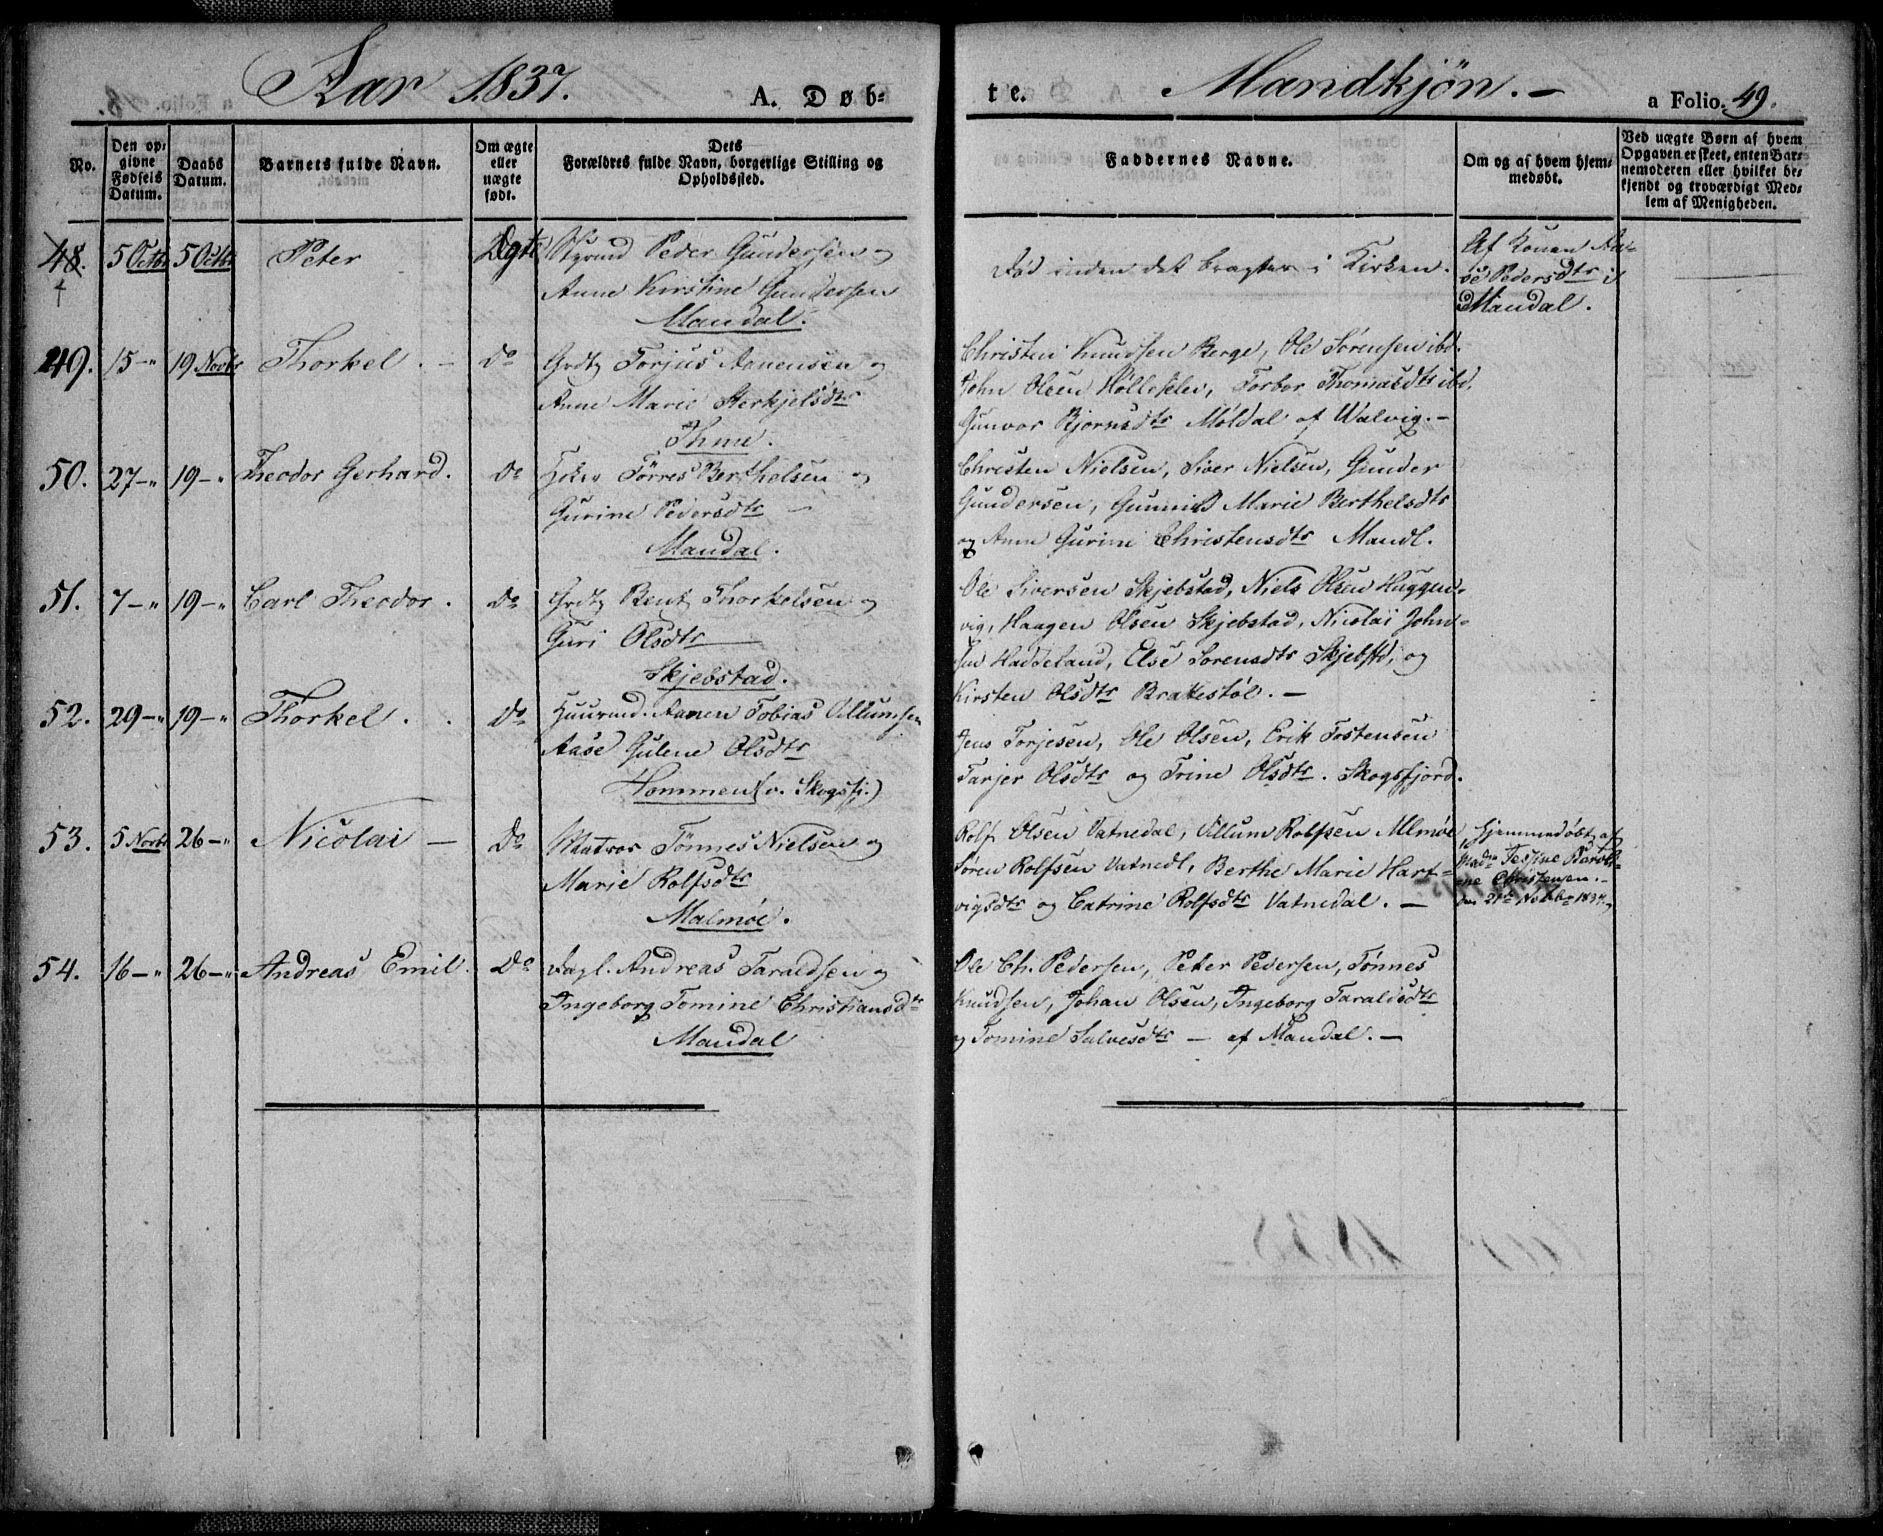 Aar 1837. A. Døb-
te. Mandkjøn. -
a Folio. 49.
No.
Den op-
givne
Fødsels
Datum.
Daabs
Datum.
Barnets fulde Navn.
Om ægte
eller
uægte
født.
Dets
Forældres fulde Navn, borgerlige Stilling og
Opholdssted.
Faddernes Navne.
Om og af hvem hjem-
medøbt.
Ved uægte Børn af hvem
Opgaven er skeet, enten Bar-
nemoderen eller hvilket be-
kjendt og troværdigt Med-
lem af Menigheden.
48. 5 Octbr 5 Octbr Peter Ægte Styrmd Peder Gundersen og
Anne Kirstine Gundersen
Mandal.
Død inden det bragtes i Kirken.
Af Konen Aa-
se Pedersdtr i
Mandal.
49. 15-" 19 Novbr Thorkel. - Do Grdtz Torjus Aanensen og
Anne Marie Sterkjelsdtr
Ihme.
Christen Knudsen Berge, Ole Sørensen ibd.
John Olsen Hølleklev, Torbor Thomasdtr ibd.
Gunvor Bjornsdtr Møldal af Walvig. -
50. 27-" 19-" Theodor Gerhard. Do Tørres Berthelsen og
Gurine Pedersdtr -
Mandal.
Christen Nielsen, Siver Nielsen, Gunder
Gundersen, Marie Berthelsdtr
og Anne Gurine Christensdtr Mandl.
51. 7-" 19-" Carl Theodor. Do Grdtz Bent Thorkelsen og
Guri Olsdtr
Skjebstad.
Ole Siversen Skjebstad, Niels Olsen Haggen-
vig, Haagen Olsen Skjebstad, Nicolai John-
sen Haddeland, Else Sørensdtr Skjebstd, og
Kirsten Olsdtr Brakestøl. -
52. 29-" 19-" Thorkel. Do Huusmd. Aanen Tobias Villumsen
Aase Gulene Olsdtr
Hommen (v. Skogsfj.)
Jens Torjesen, Ole Olsen, Erik Tostensen
Tarjer Olsdtr og Trine Olsdtr. Skogsfjord.
53. 5 Novbr 26-" Nicolai - Do Matros Tønnes Nielsen og
Marie Rolfsdtr
Malmøe.
Rolf Olsen Vatnedal, Villum Rolfsen Malmøe
Søren Rolfsen Vatnedl, Berthe Marie Hart-
vigsdtr og Catrine Rolfsdtr Vatnedal. -
Hjemmedøbt af
Madm
Christensen. -
den 21de Novbr 1837.
54. 16-" 26-" Andreas Emil. Do Dagl. Andreas Taraldsen og
Ingeborg Tomine Christiansdtr
Mandal
Ole Ch. Pedersen, Peter Pedersen, Tønnes
Knudsen, Johan Olsen, Ingeborg Taraldsdtr
og Tomine Salvesdtr - af Mandal. -